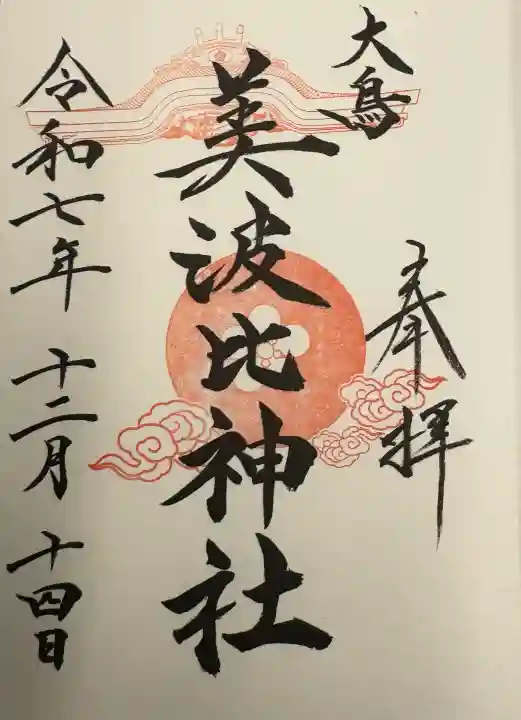 大鳥
奉拝
美波比神社
令和七年十二月十四日